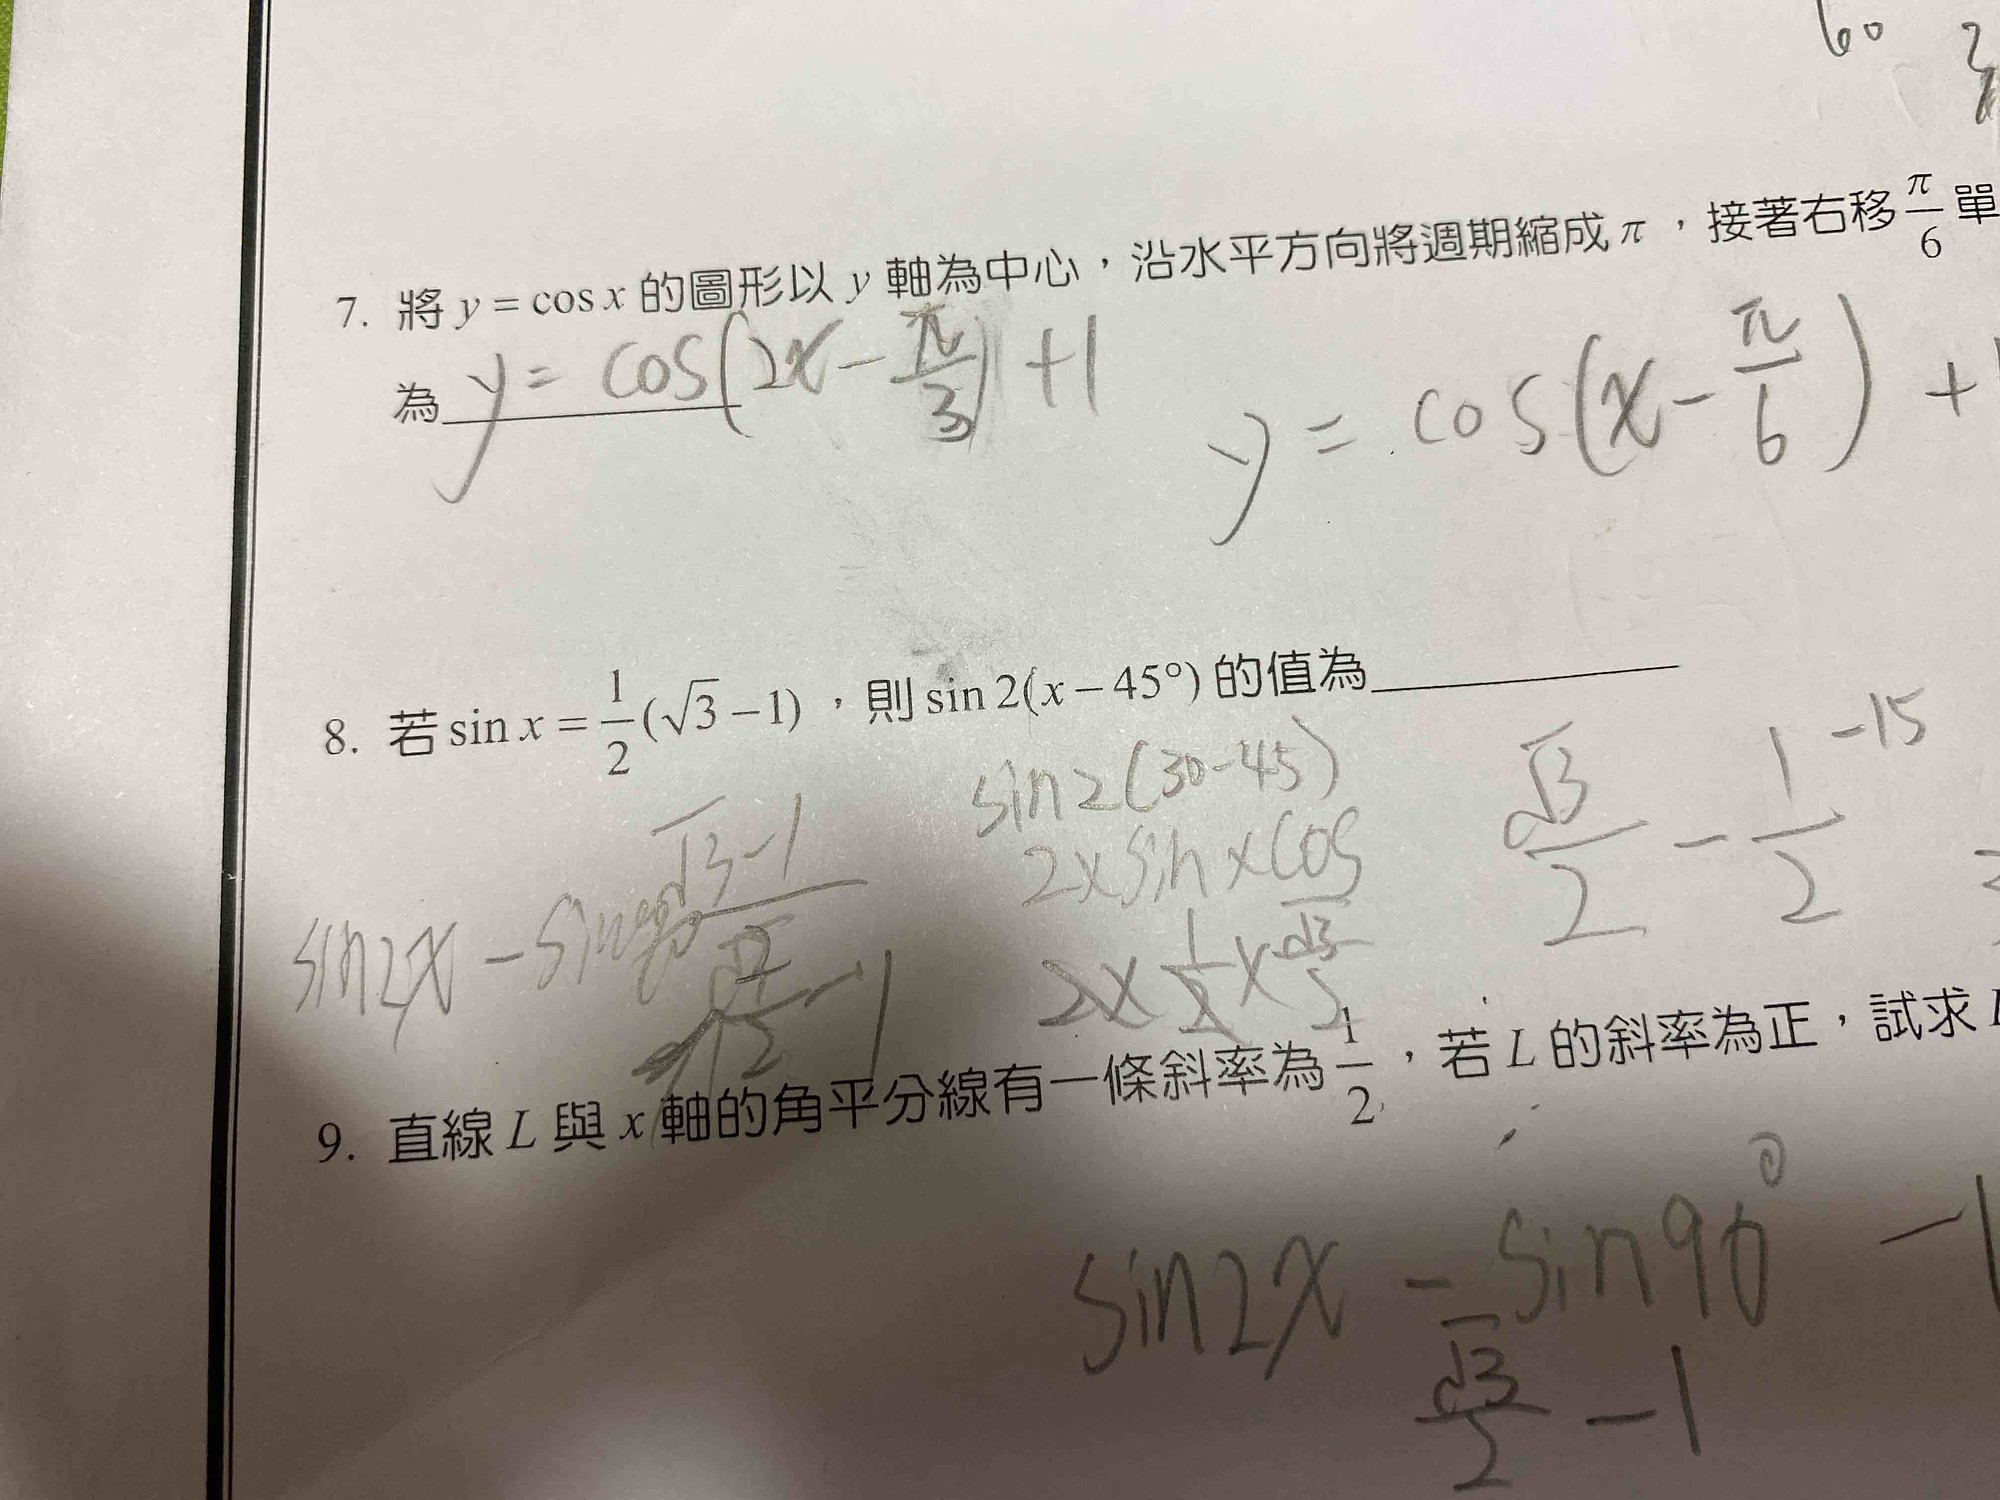 60
7. 將 y = cos x 的圖形以 y 軸為中心，沿水平方向將週期縮成 π ，接著右移 π/6 單
為 y = cos(2x - π/3) + 1
y = cos(x - π/6) +
8. 若 sin x = 1/2(√3 - 1) ，則 sin 2(x - 45°) 的值為
sin2(30-45)
2×sin×cos
2×1/2×√3/2
√3/2 - 1/2
-15
√3-1
sin2x - sin90
9. 直線 L 與 x 軸的角平分線有一條斜率為 1/2 ，若 L 的斜率為正，試求
sin2x - sin90° -1
√3/2 - 1